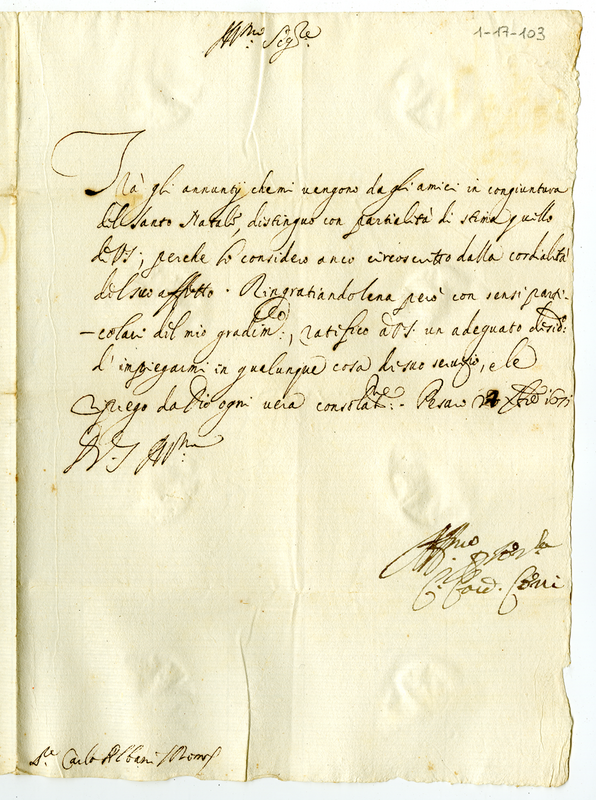 Illmo Sigre
1-17-103
Frà gli annuntij che mi vengono dagli amici in congiuntura
del Santo Natale, distinguo con partialità di stima quello
di VS; perche lo considero anco circoscritto dalla cordialità
del suo affetto. Ringratiandolena però con sensi parti-
-colari del mio gradimto, ratifico à VS. un adeguato desido
d'impiegarmi in qualunque cosa di suo servitio, e le
priego da Dio ogni vera consolatne. Pesaro Xbre
D. V. S. Illma
Affmo
C. Card.
Sre Carlo Albani Roma